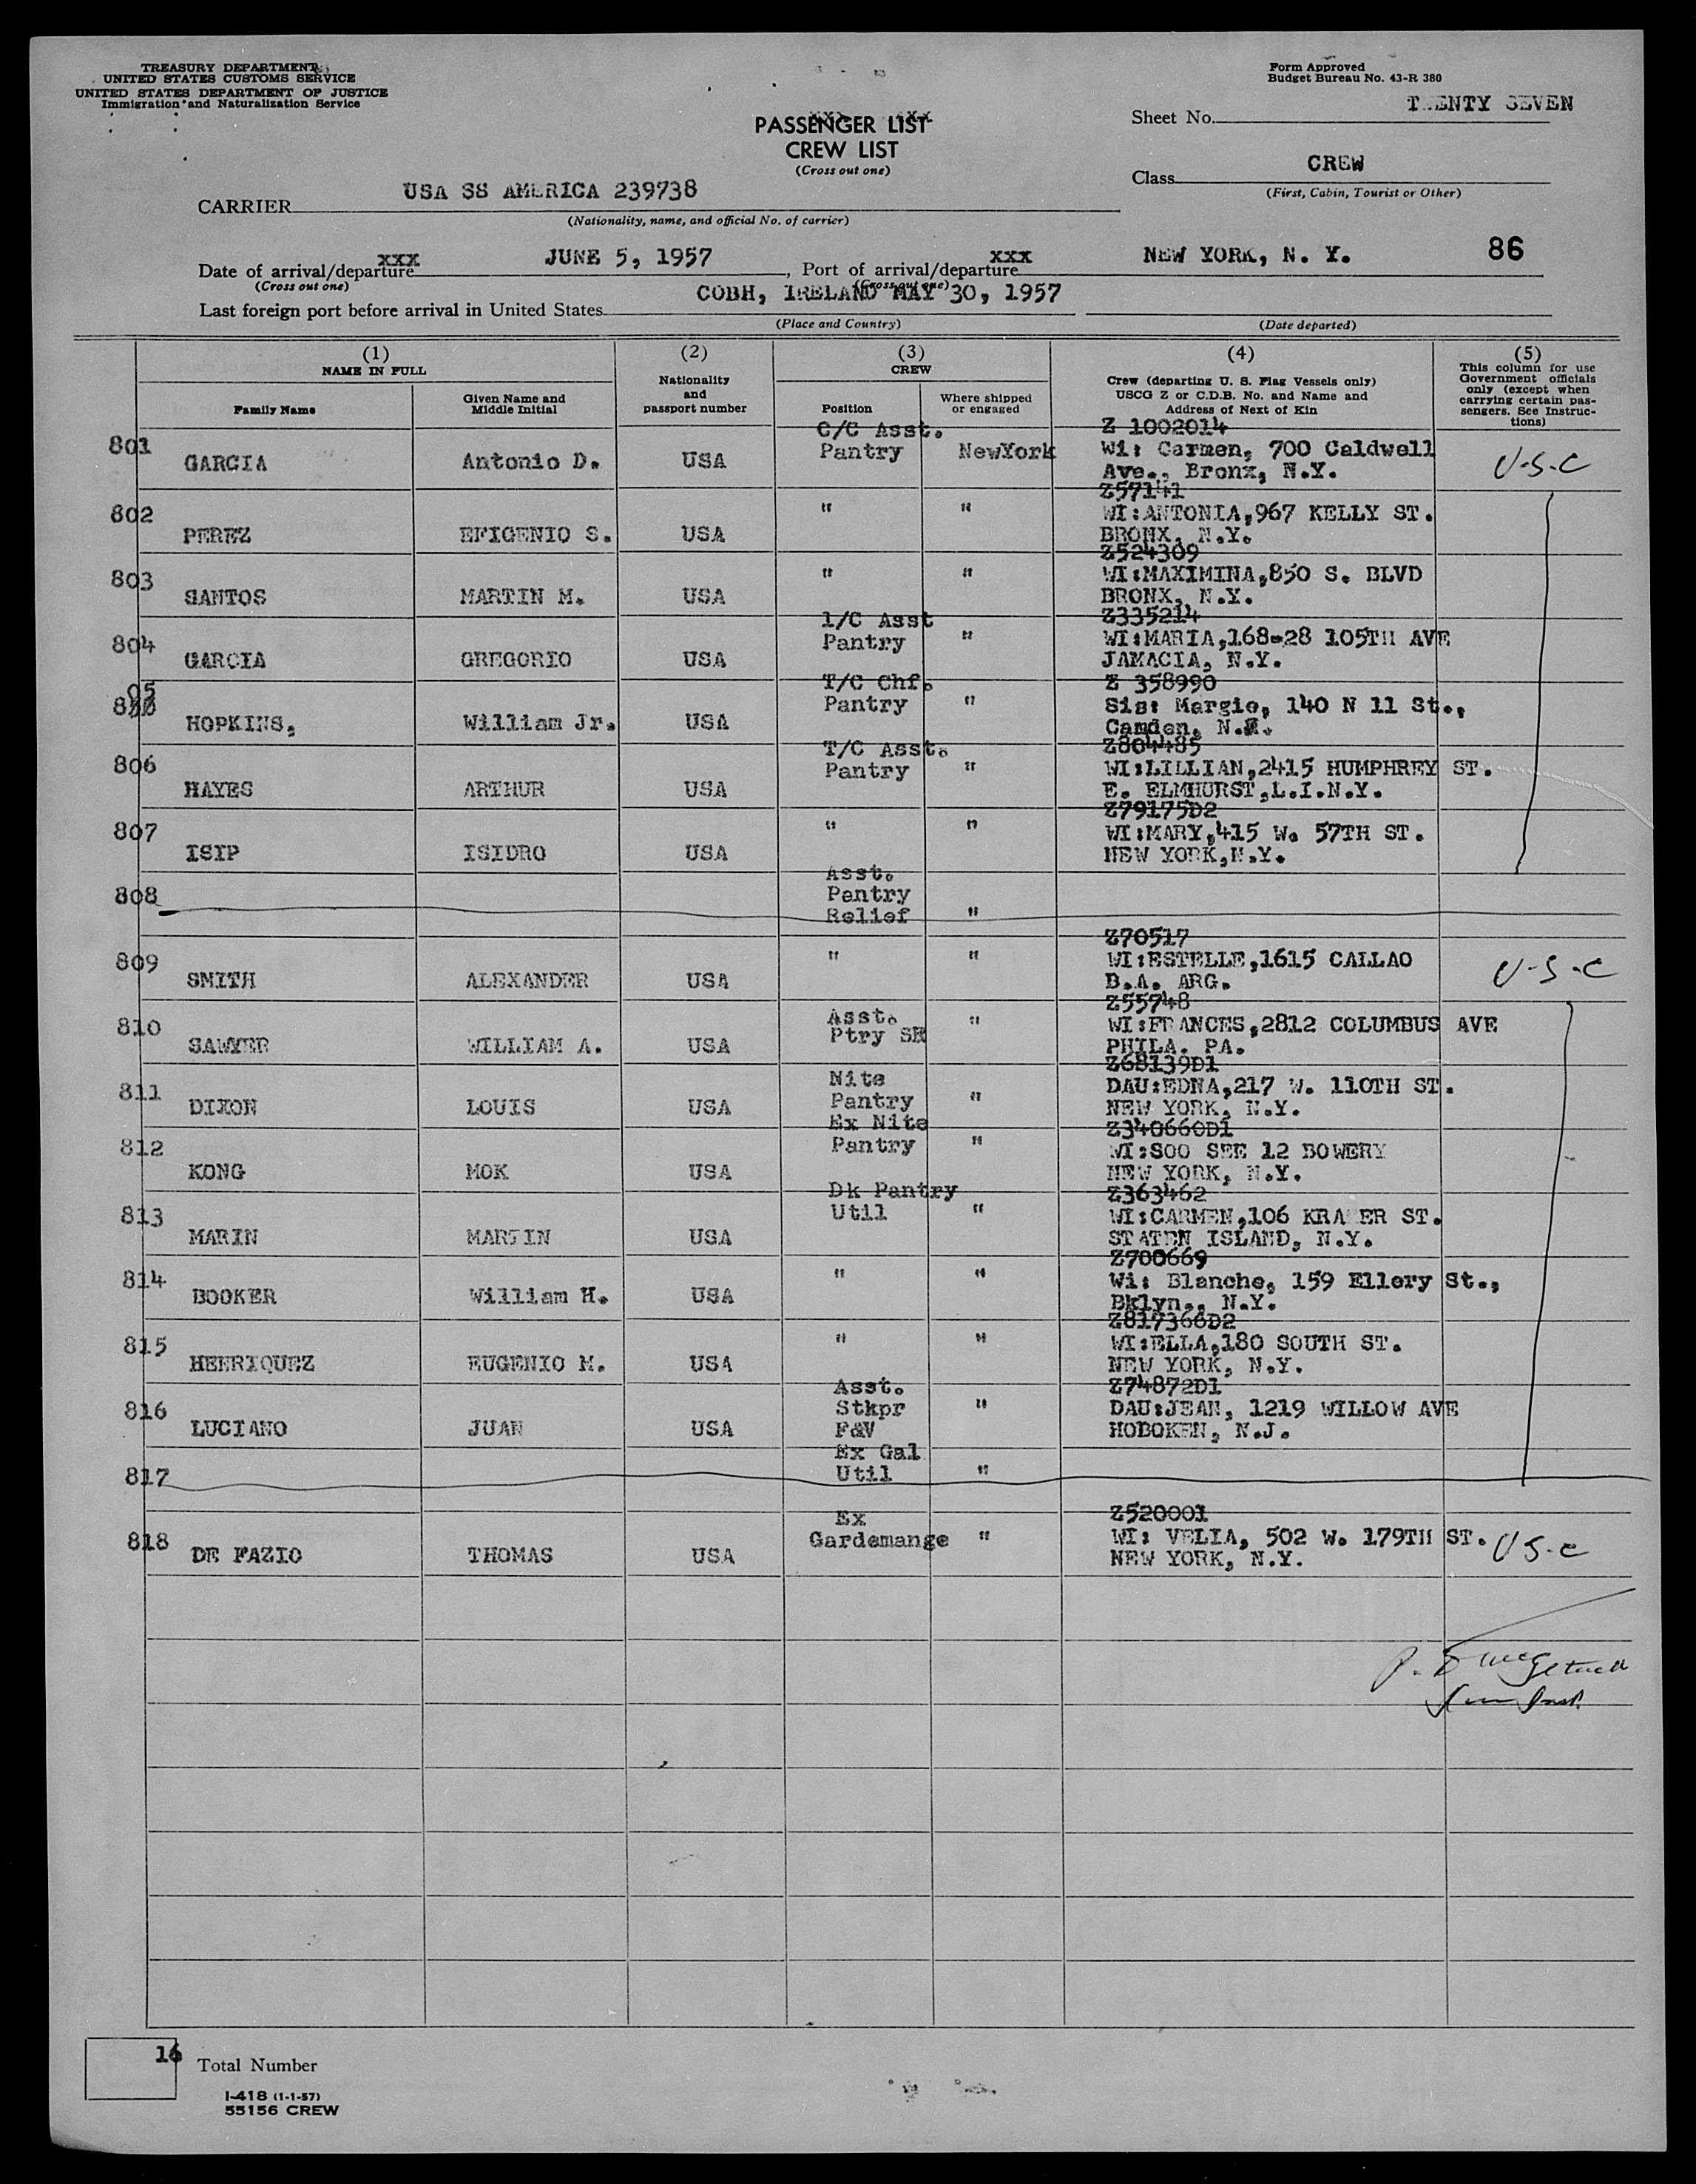 TREASURY DEPARTMENT
UNITED STATES CUSTOMS SERVICE
UNITED STATES DEPARTMENT OF JUSTICE
Immigration and Naturalization Service
Form Approved
Budget Bureau No. 43-R 380
Sheet No. TWENTY SEVEN
xxx xxx
PASSENGER LIST
CREW LIST
(Cross out one)
Class CREW
(First, Cabin, Tourist or Other)
CARRIER USA SS AMERICA 239738
(Nationality, name, and official No. of carrier)
Date of arrival/departure xxx JUNE 5, 1957, Port of arrival/departure xxx NEW YORK, N. Y. 86
(Cross out one) (Cross out one)
Last foreign port before arrival in United States COBH, IRELAND MAY 30, 1957
(Place and Country) (Date departed)
(1) NAME IN FULL
Family Name
Given Name and Middle Initial
(2) Nationality and passport number
(3) CREW
Position
Where shipped or engaged
(4) Crew (departing U. S. Flag Vessels only) USCG Z or C.D.B. No. and Name and Address of Next of Kin
(5) This column for use Government officials only (except when carrying certain passengers. See Instructions)
801 GARCIA Antonio D. USA C/C Asst. Pantry NewYork Z 1002014 Wi: Carmen, 700 Caldwell Ave., Bronx, N.Y. U-S-C
802 PEREZ EFIGENIO S. USA " " Z57141 WI:ANTONIA,967 KELLY ST. BRONX, N.Y.
803 SANTOS MARTIN M. USA " " Z524309 WI:MAXIMINA,850 S. BLVD BRONX, N.Y.
804 GARCIA GREGORIO USA 1/C Asst Pantry " Z335214 WI:MARIA,168-28 105TH AVE JAMACIA, N.Y.
805 HOPKINS, William Jr. USA T/C Chf. Pantry " Z 358990 Sis: Margie, 140 N 11 St., Camden, N.J.
806 HAYES ARTHUR USA T/C Asst. Pantry " Z804485 WI:LILLIAN,2415 HUMPHREY ST. E. ELMHURST,L.I.N.Y.
807 ISIP ISIDRO USA " " Z79175D2 WI:MARY,415 W. 57TH ST. NEW YORK,N.Y.
808 Asst. Pantry Relief "
809 SMITH ALEXANDER USA " " Z70517 WI:ESTELLE,1615 CALLAO B.A. ARG. U-S-C
810 SAWYER WILLIAM A. USA Asst. Ptry SR " Z55748 WI:FRANCES,2812 COLUMBUS AVE PHILA. PA.
811 DIXON LOUIS USA Nite Pantry " Z68139D1 DAU:EDNA,217 W. 110TH ST. NEW YORK, N.Y.
812 KONG MOK USA Ex Nite Pantry " Z340660D1 WI:SOO SEE 12 BOWERY NEW YORK, N.Y.
813 MARIN MARTIN USA Dk Pantry Util " Z363462 WI:CARMEN,106 KRAMER ST. STATEN ISLAND, N.Y.
814 BOOKER William H. USA " " Z700669 Wi: Blanche, 159 Ellery St., Bklyn., N.Y.
815 HENRIQUEZ EUGENIO M. USA " " Z817366D2 WI:ELLA,180 SOUTH ST. NEW YORK, N.Y.
816 LUCIANO JUAN USA Asst. Stkpr F&V " Z74872D1 DAU:JEAN, 1219 WILLOW AVE HOBOKEN, N.J.
817 Ex Gal Util "
818 DE FAZIO THOMAS USA Ex Gardemange " Z520001 WI: VELIA, 502 W. 179TH ST. NEW YORK, N.Y. U S-C
16 Total Number
I-418 (1-1-57)
55156 CREW